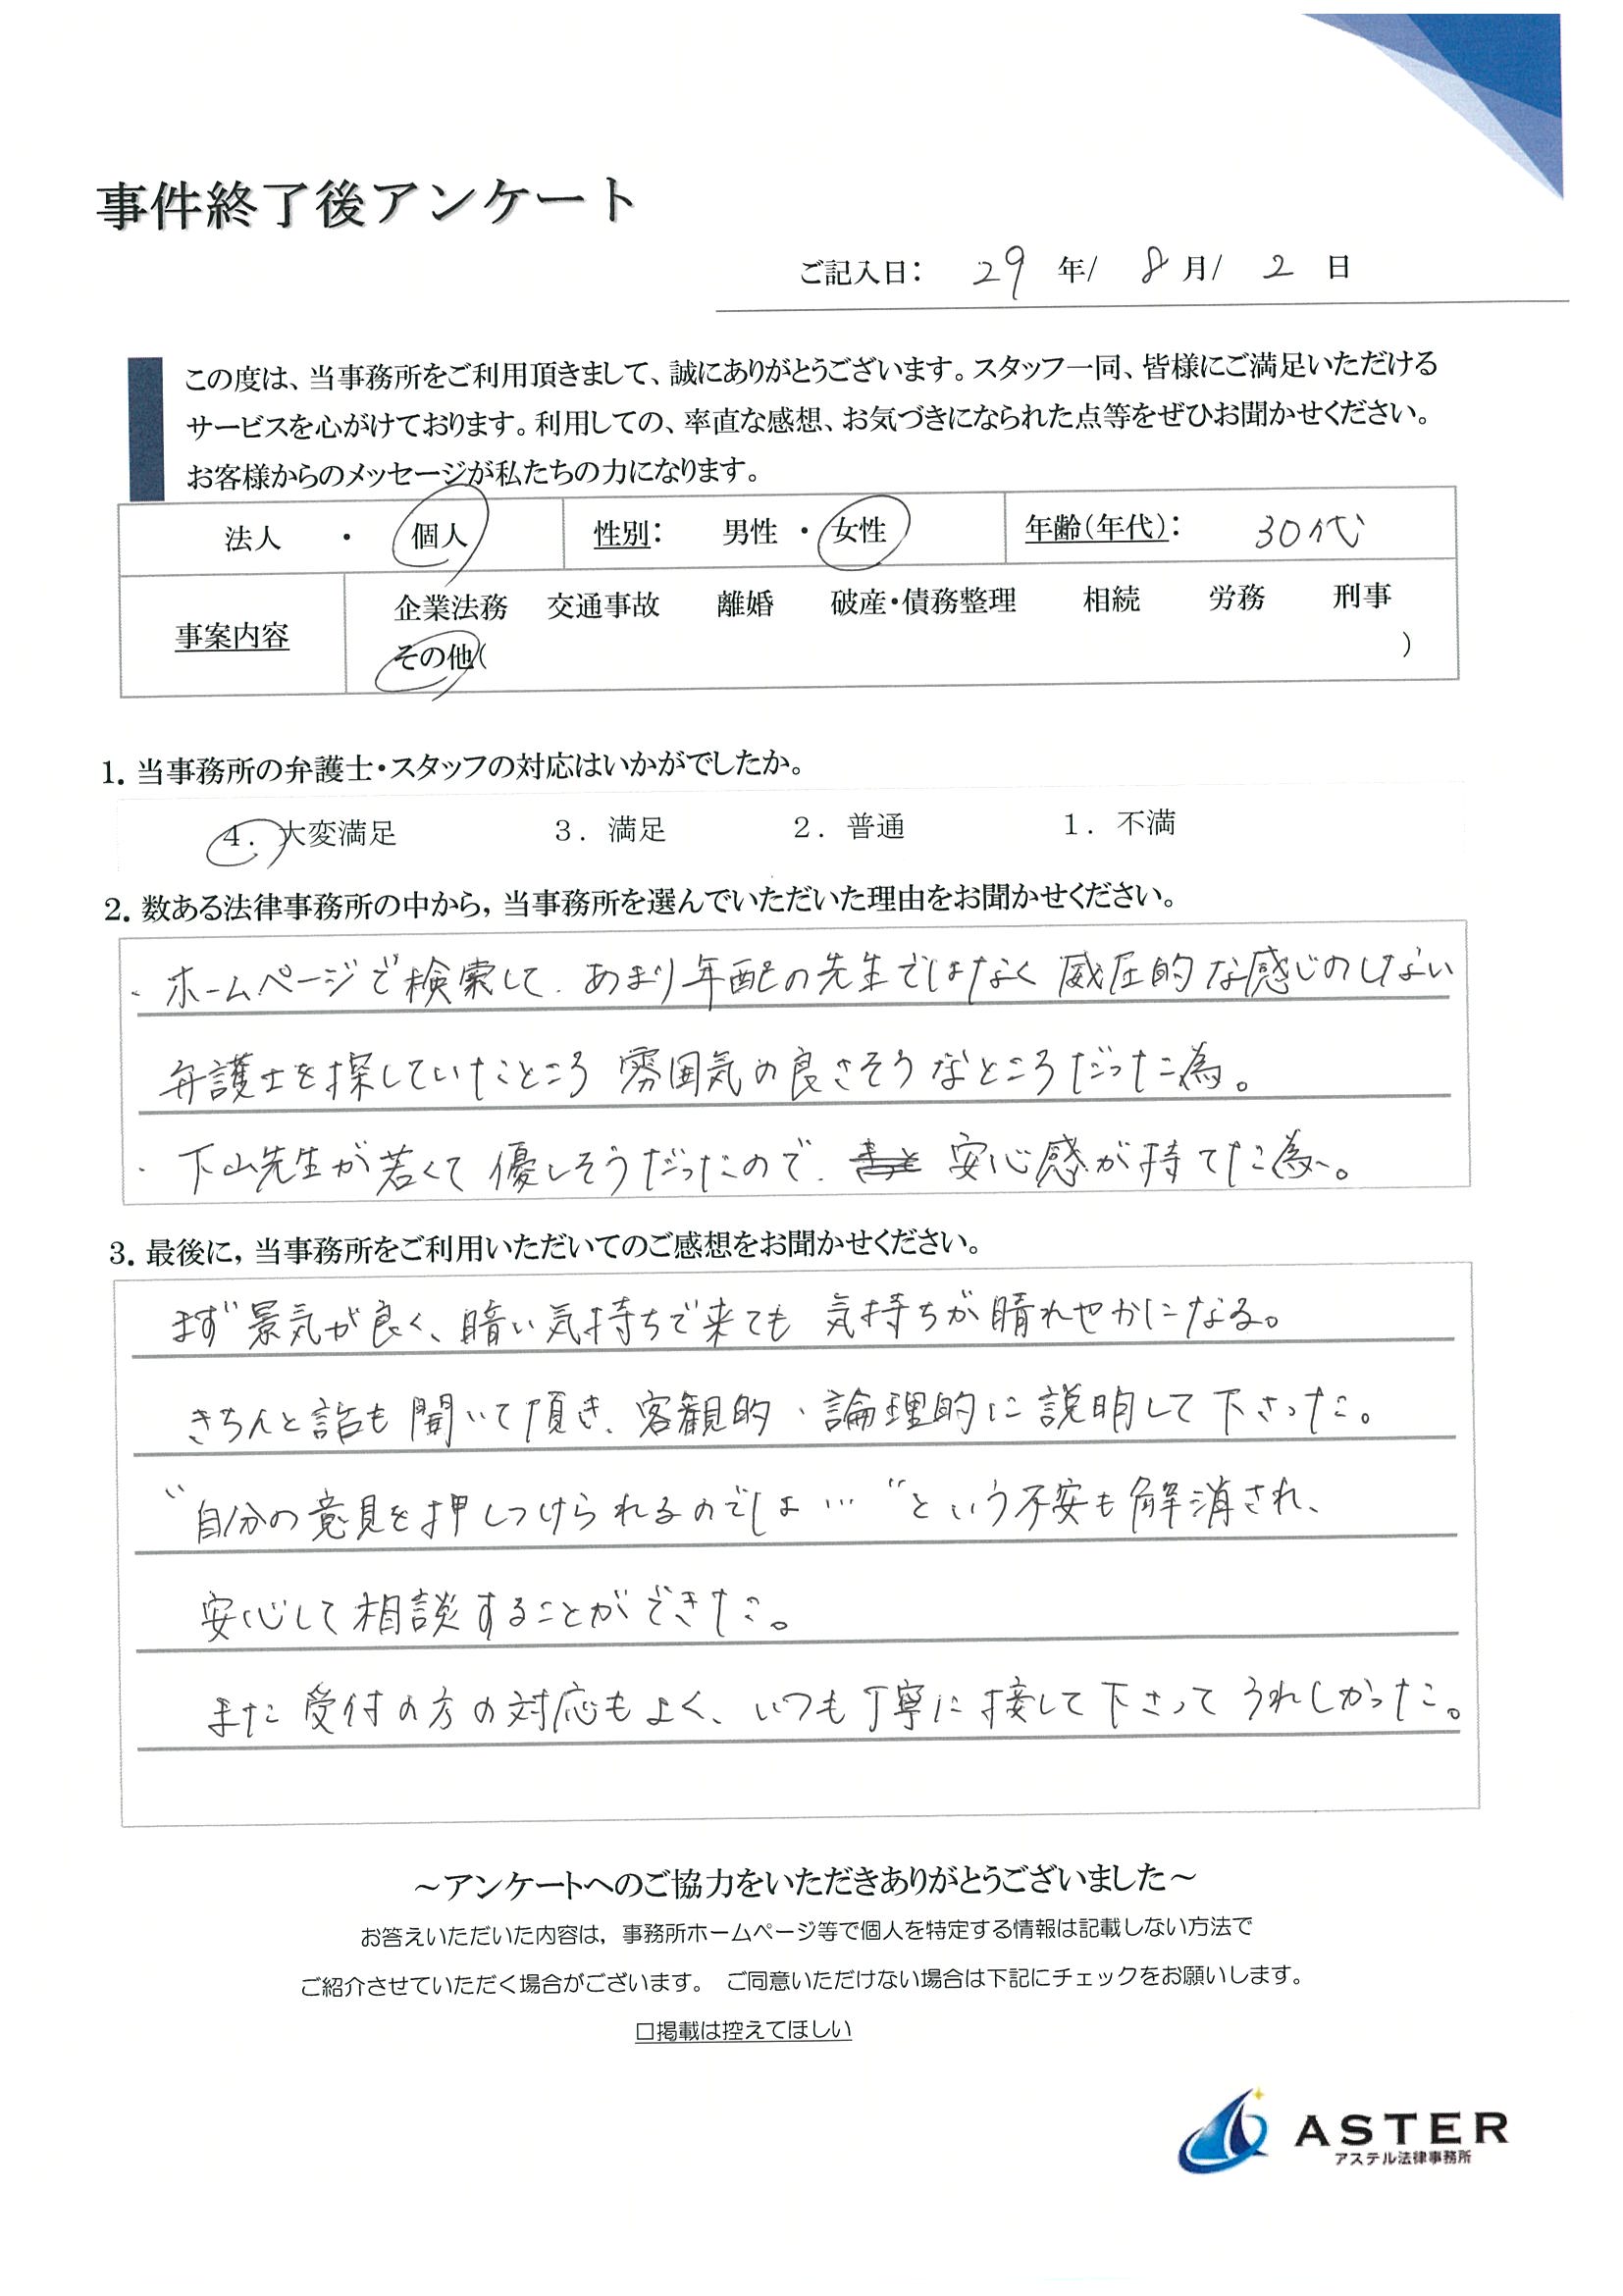 事件終了後アンケート
ご記入日： 29 年/ 8 月/ 2 日
この度は、当事務所をご利用頂きまして、誠にありがとうございます。スタッフ一同、皆様にご満足いただける
サービスを心がけております。利用しての、率直な感想、お気づきになられた点等をぜひお聞かせください。
お客様からのメッセージが私たちの力になります。
法人 ・ 個人 性別： 男性 ・ 女性 年齢（年代）： 30代
企業法務 交通事故 離婚 破産・債務整理 相続 労務 刑事
事案内容
その他（ ）
1. 当事務所の弁護士・スタッフの対応はいかがでしたか。
4. 大変満足 3. 満足 2. 普通 1. 不満
2. 数ある法律事務所の中から，当事務所を選んでいただいた理由をお聞かせください。
・ホームページで検索して、あまり年配の先生ではなく 威圧的な感じのしない
弁護士を探していたところ 雰囲気の良さそうなところだった為。
・下山先生が若くて優しそうだったので、安心感が持てた為。
3. 最後に，当事務所をご利用いただいてのご感想をお聞かせください。
まず景気が良く、暗い気持ちで来ても 気持ちが晴れやかになる。
きちんと話も聞いて頂き、客観的、論理的に説明して下さった。
“自分の意見を押しつけられるのでしょ…”という不安も解消され、
安心して相談することができた。
また受付の方の対応もよく、いつも丁寧に接して下さってうれしかった。
～アンケートへのご協力をいただきありがとうございました～
お答えいただいた内容は，事務所ホームページ等で個人を特定する情報は記載しない方法で
ご紹介させていただく場合がございます。 ご同意いただけない場合は下記にチェックをお願いします。
□掲載は控えてほしい
ASTER
アステル法律事務所